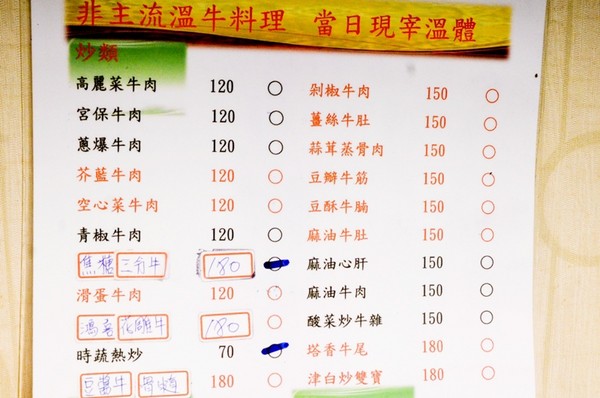 非主流溫牛料理 當日現宰溫體
炒類
高麗菜牛肉 120 ○
宮保牛肉 120 ○
蔥爆牛肉 120 ○
芥藍牛肉 120 ○
空心菜牛肉 120 ○
青椒牛肉 120 ○
焦糖 三分牛 180 ○
滑蛋牛肉 120 ○
花雕牛 180 ○
時蔬熱炒 70 ○
豆醬牛 180 ○
剁椒牛肉 150 ○
薑絲牛肚 150 ○
蒜茸蒸骨肉 150 ○
豆瓣牛筋 150 ○
豆酥牛腩 150 ○
麻油牛肚 150 ○
麻油心肝 150 ○
麻油牛肉 150 ○
酸菜炒牛雜 150 ○
塔香牛尾 180 ○
津白炒雙寶 180 ○